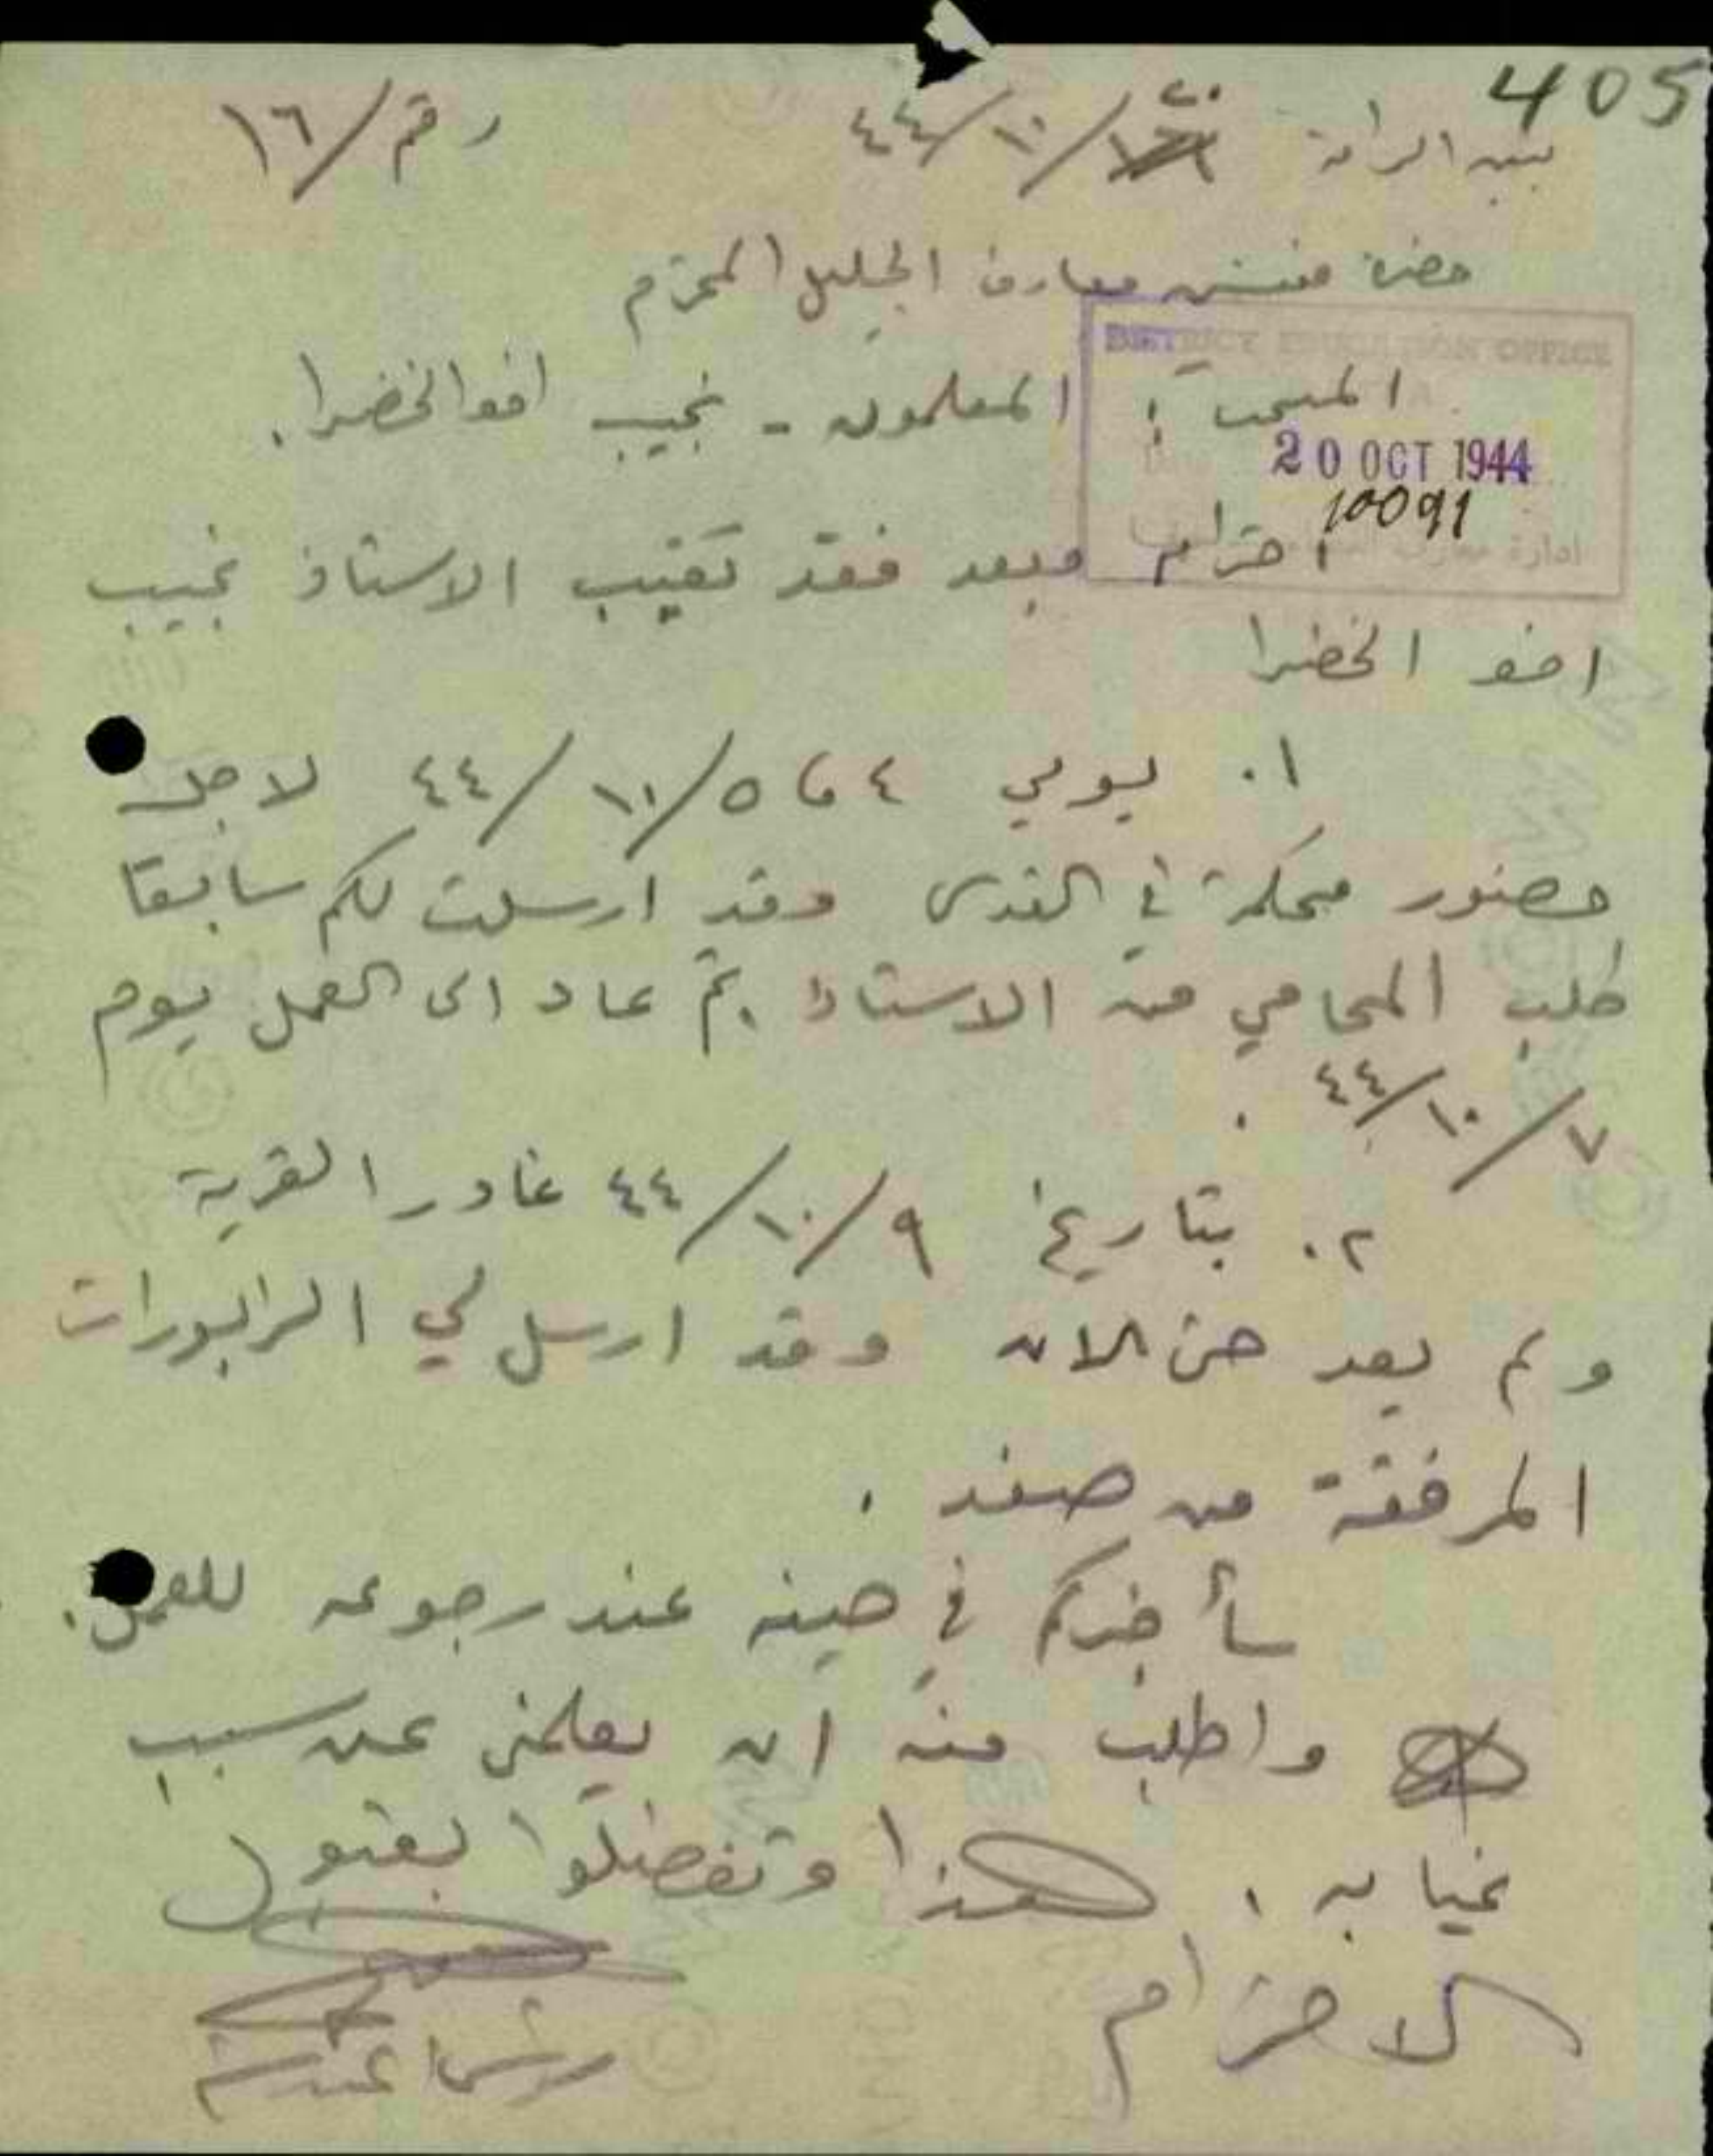 405
الرامة ٢٠/١٠/٤٤ رقم/١٦
حضرة مفتش معارف الجليل المحترم
DISTRICT EDUCATION OFFICE
المبحث : المعلمون - نجيب افند الخضرا.
20 OCT 1944
10091
ادارة معارف
احترام وبعد فقد تغيب الاستاذ نجيب
افند الخضرا
١. يومي ٤ و ٥/١٠/٤٤ لاجل
حضور محكمة في القدس وقد ارسلت لكم سابقا
طلب المحامي من الاستاذ. ثم عاد الى العمل يوم
٧/١٠/٤٤.
٢. بتاريخ ٩/١٠/٤٤ غادر القرية
ولم يعد حتى الان وقد ارسل لي الرابورات
المرفقة من صفد.
سأخبركم في حينه عند رجوعه للعمل.
واطلب منه ان يعلمني عن سبب
غيابه. هذا وتفضلوا بقبول
الاحترام